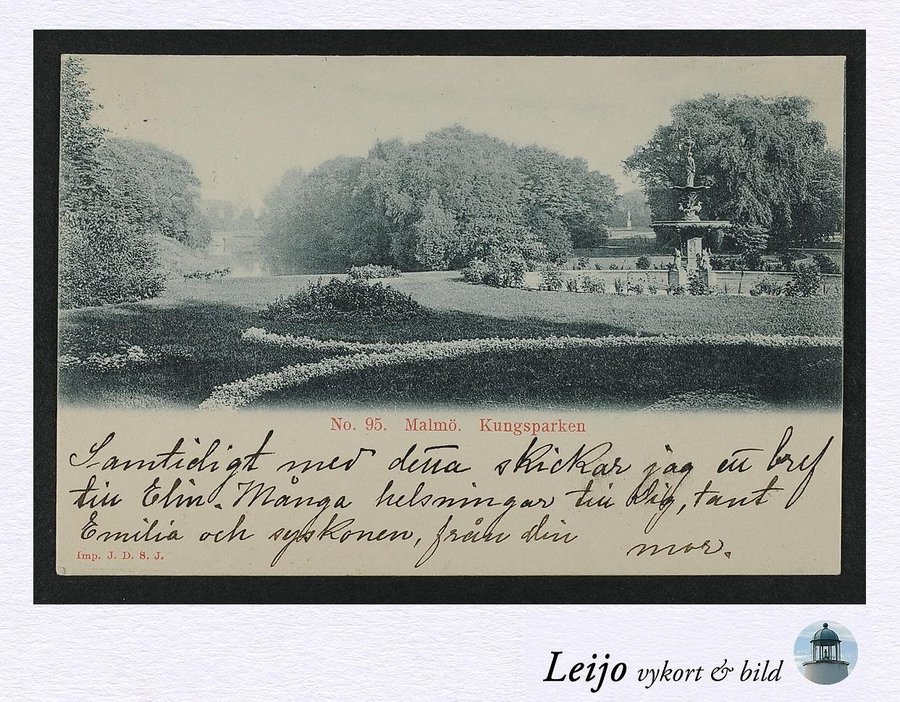 No. 95. Malmö. Kungsparken
Samtidigt med detta skickar jag ett bref
till Elin. Många helsningar till Dig, tant
Emilia och syskonen, från din mor.
Imp. J. D. S. J.
Leijo vykort & bild